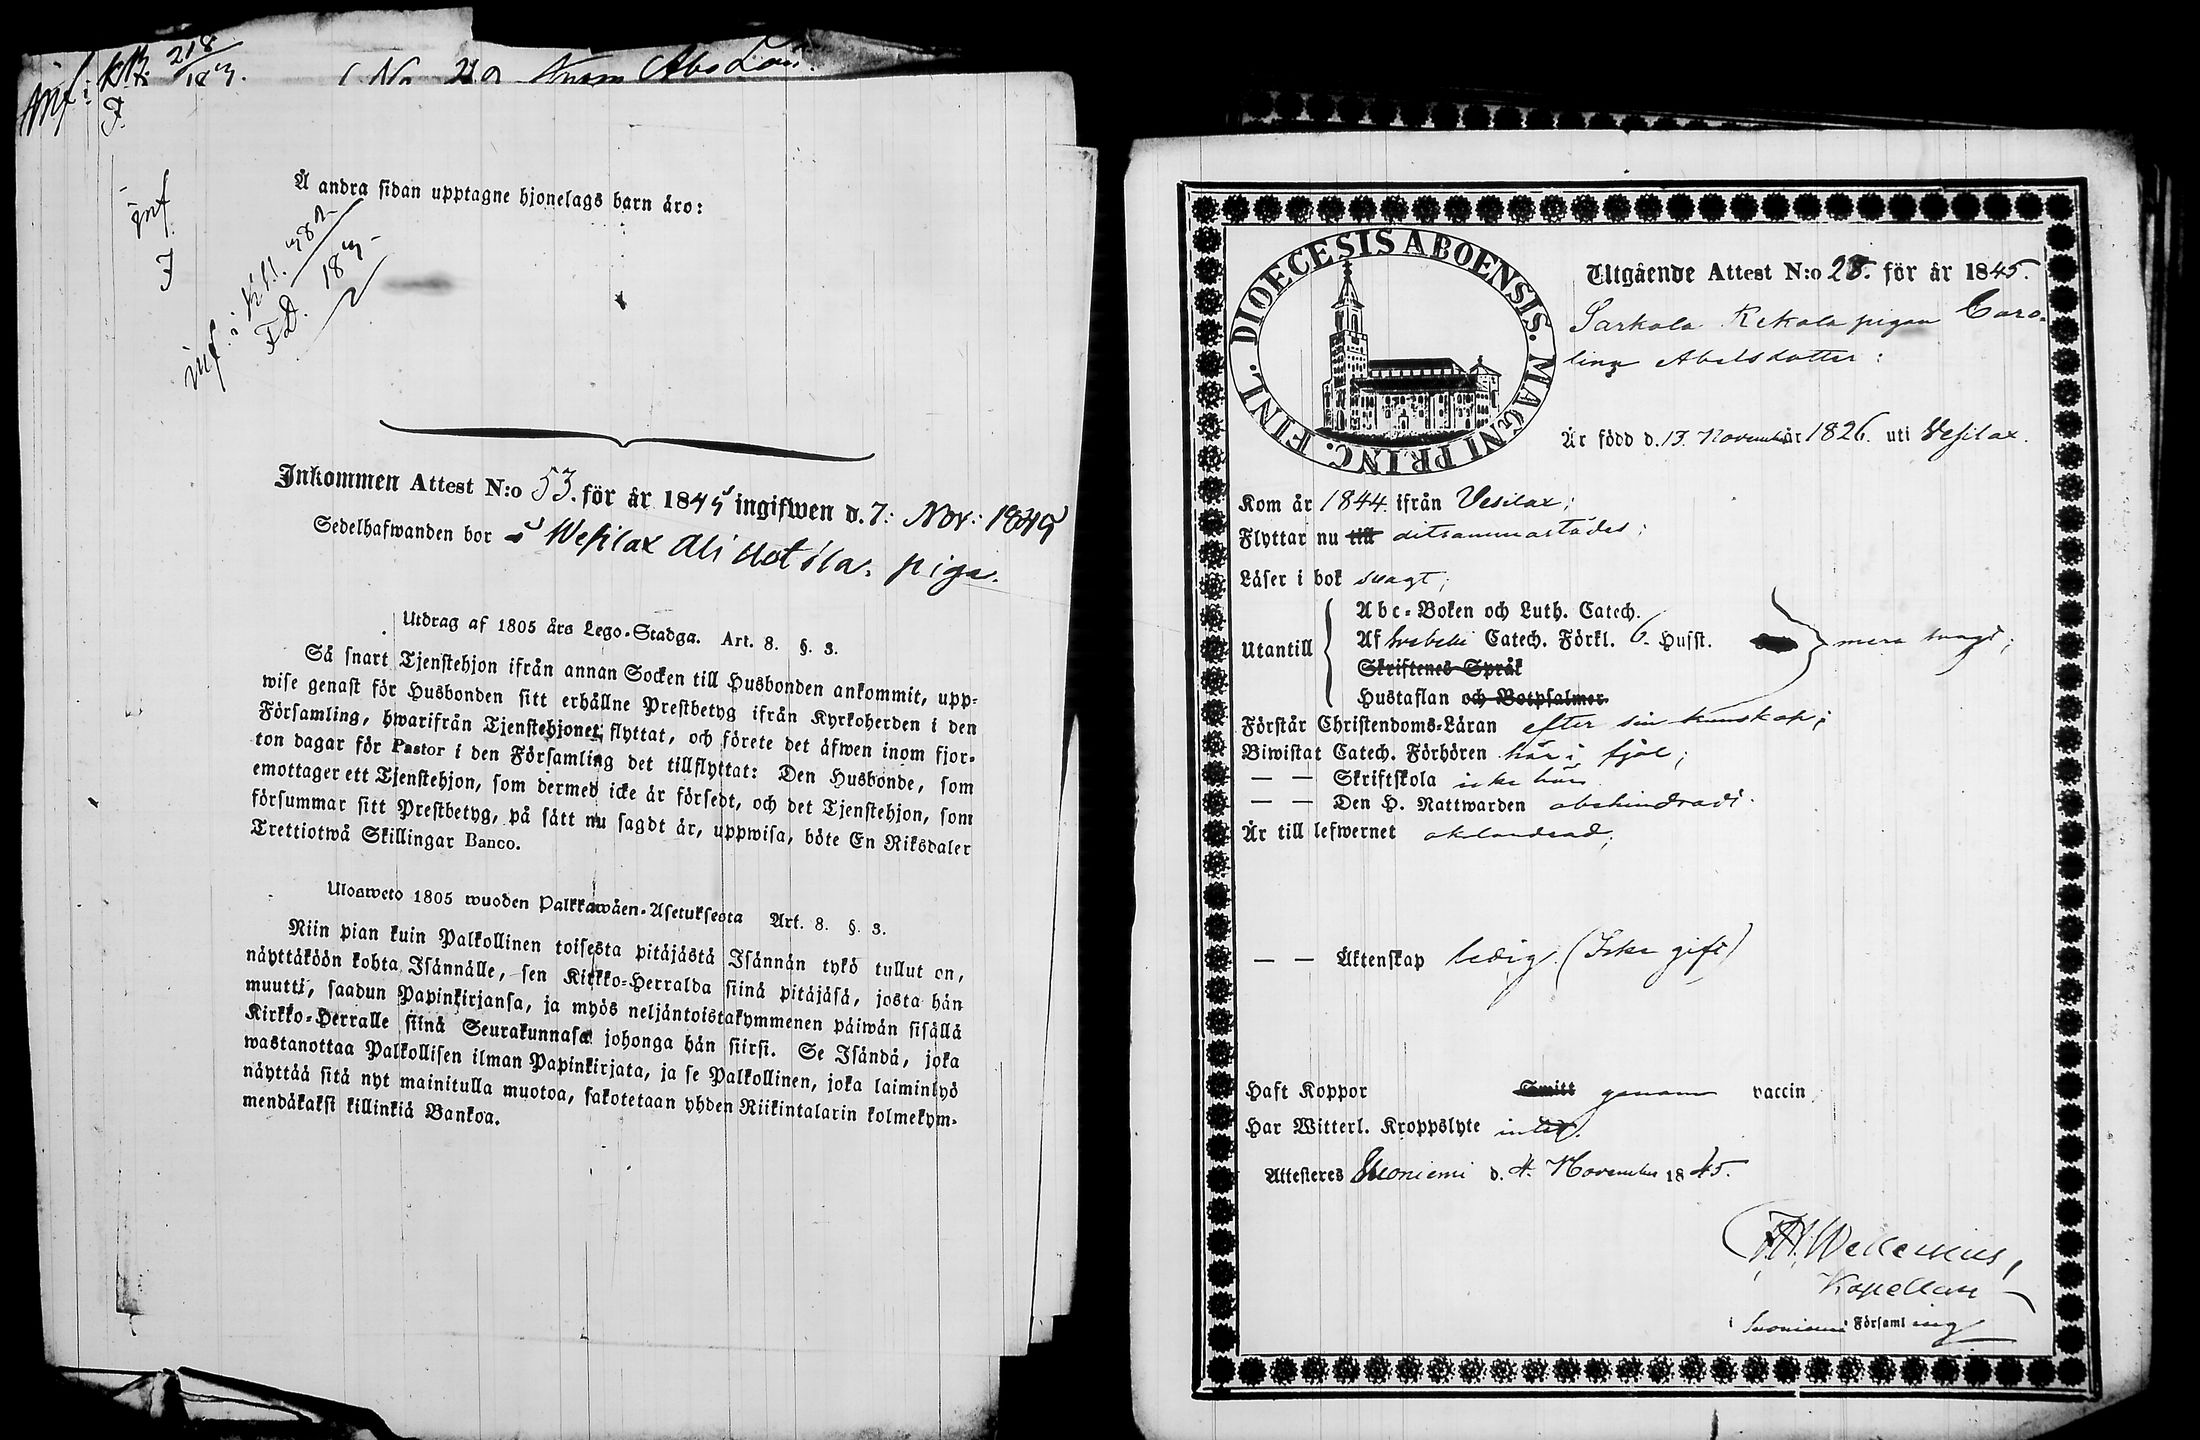 Å andra sidan upptagne hjonelags barn äro:
Inkommen Attest N:o 53. för år 1845 ingifwen d. 7: Nov: 1845
Sedelhafwanden bor i Wesilax piga.
Utdrag af 1805 års Lego-Stadga. Art. 8. §. 3.
Så snart Tjenstehjon ifrån annan Socken till Husbonden ankommit, upp-
wise genast för Husbonden sitt erhållne Prestbetyg ifrån Kyrkoherden i den
Församling, hwarifrån Tjenstehjonet flyttat, och förete det äfwen inom fjor-
ton dagar för Pastor i den Församling det tillflyttat: Den Husbonde, som
emottager ett Tjenstehjon, som dermed icke är försedt, och det Tjenstehjon, som
försummar sitt Prestbetyg, på sätt nu sagdt är, uppwisa, böte En Riksdaler
Trettiotwå Skillingar Banco.
Ulosweto 1805 wuoden Palkkawäen-Asetuksesta Art. 8. §. 3.
Niin pian kuin Palkollinen toisesta pitäjästä Isännän tykö tullut on,
näyttäköön kohta Isännälle, sen Kirkko-Herralda siinä pitäjäsä, josta hän
muutti, saadun Papinkirjansa, ja myös neljäntoistakymmenen päiwän sisällä
Kirkko-Herralle siinä Seurakunnasa johonga hän siirsi. Se Isändä, joka
wastanottaa Palkollisen ilman Papinkirjata, ja se Palkollinen, joka laiminlyö
näyttää sitä nyt mainitulla muotoa, sakotetaan yhden Riikintalarin kolmekym-
mendäkaksi killinkiä Bankoa.
DIOECESIS ABOENSIS. MAGNI PRINC. FINL.
Utgående Attest N:o 28. för år 1845.
Sarkola Kekola pigan Caro-
lina Abelsdotter:
Är född d. 13 November år 1826. uti Vesilax.
Kom år 1844 ifrån Vesilax;
Flyttar nu till ditsammastädes;
Läser i bok svagt;
Utantill
Abc-Boken och Luth. Catech.
Af Svebelii Catech. Förkl. 6. Husst. mera svagt;
Skriftenes Språk
Hustaflan och Botpsalmer.
Förstår Christendoms-Läran efter sin kunskap;
Biwistat Catech. Förhören här i fjol;
— — Skriftskola icke här
— — Den H. Nattwarden obehindradt.
Är till lefwernet oklandrad;
— — Äktenskap ledig. (Icke gift)
Haft Koppor Smitt genom vaccin
Har Witterl. Kroppslyte intet.
Attesteres Suoniemi d. 4. November 1845.
Kapellan
i Suoniemi Församling